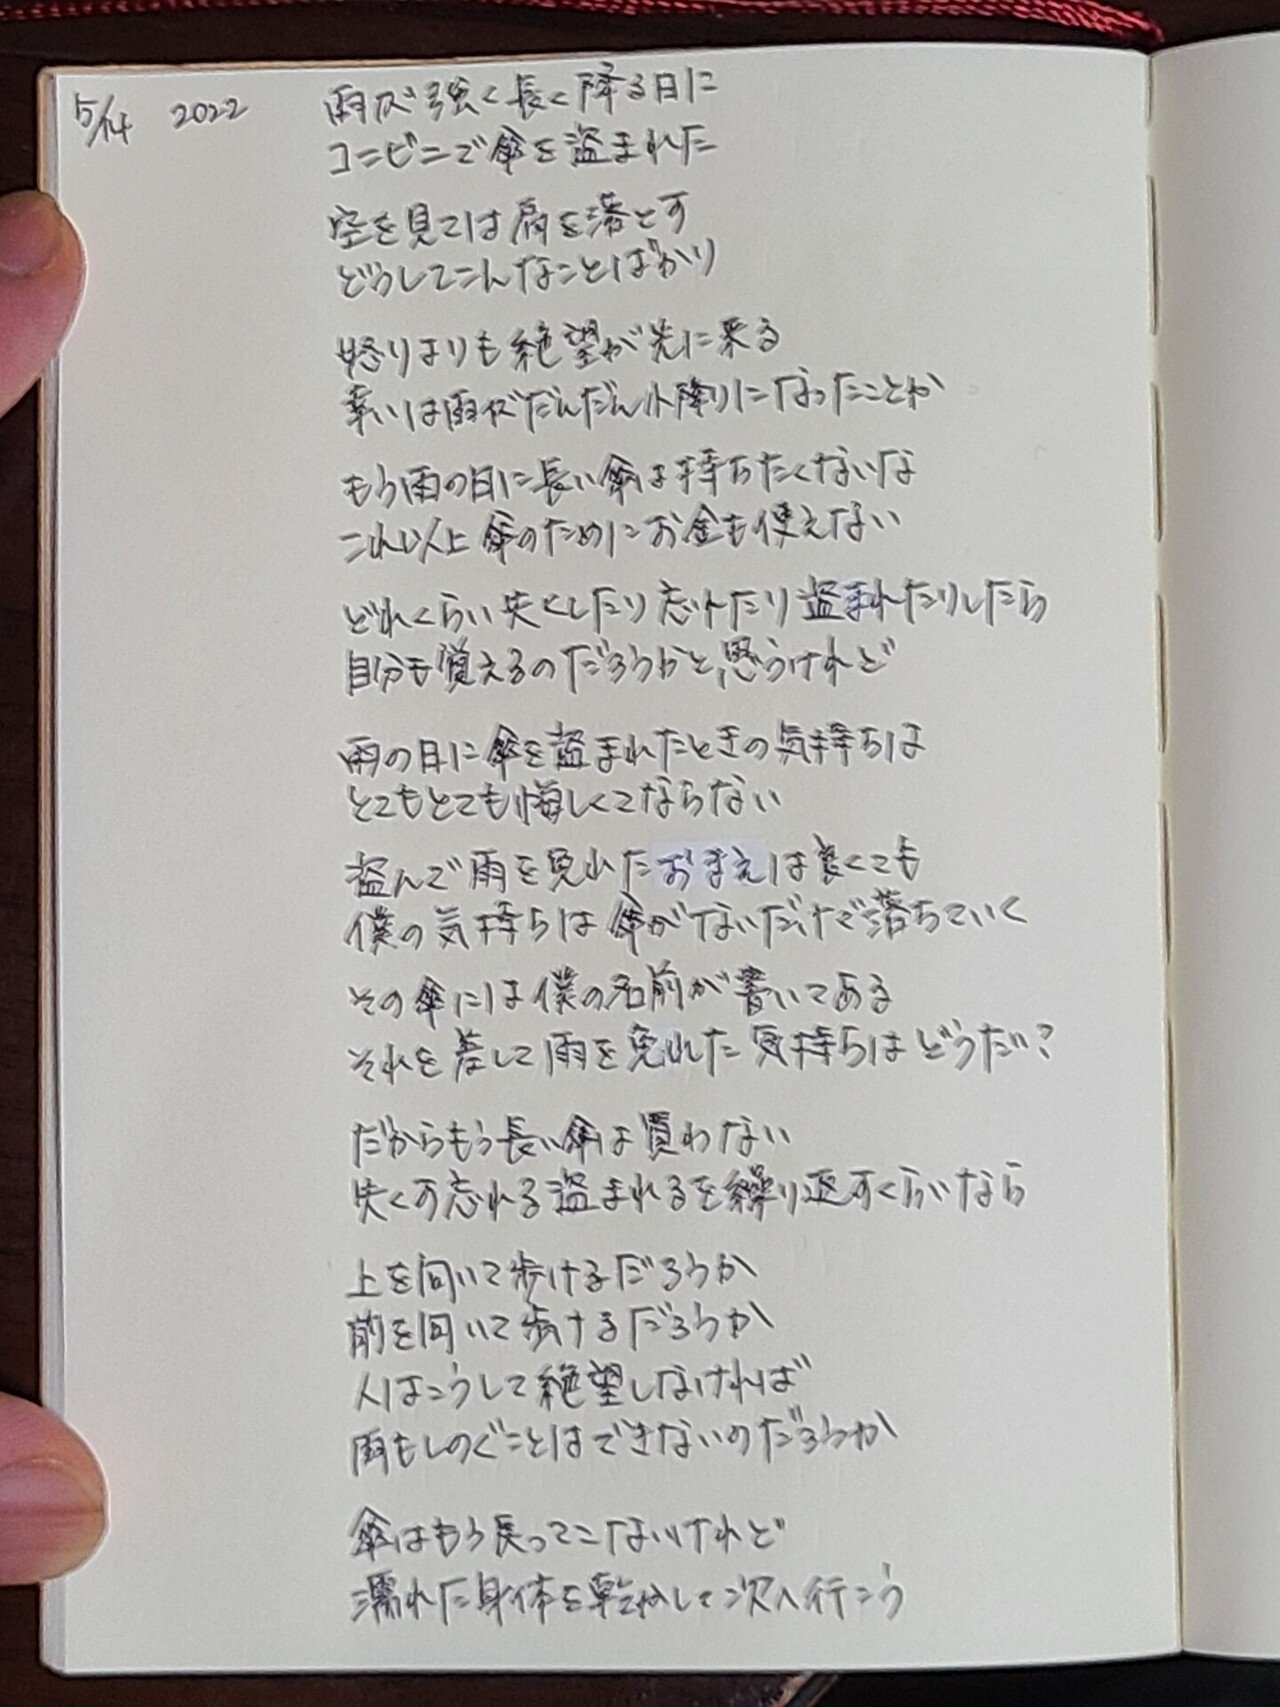 5/14 2022
雨が強く長く降る日に
コンビニで傘を盗まれた
空を見ては肩を落とす
どうしてこんなことばかり
怒りよりも絶望が先に来る
幸いは雨がだんだん小降りになったことか
もう雨の日に長い傘は持ちたくないな
これ以上傘のためにお金も使えない
どれくらい失くしたり忘れたり盗まれたりしたら
自分も覚えるのだろうかと思うけれど
雨の日に傘を盗まれたときの気持ちは
とてもとても悔しくてならない
盗んで雨を免れたおまえは良くても
僕の気持ちは傘がないだけで落ちていく
その傘には僕の名前が書いてある
それを差して雨を免れた気持ちはどうだい?
だからもう長い傘は買わない
失くす忘れる盗まれるを繰り返すくらいなら
上を向いて歩けるだろうか
前を向いて歩けるだろうか
人はこうして絶望しなければ
雨もしのぐことはできないのだろうか
傘はもう戻ってこないけれど
濡れた身体を乾かして次へ行こう